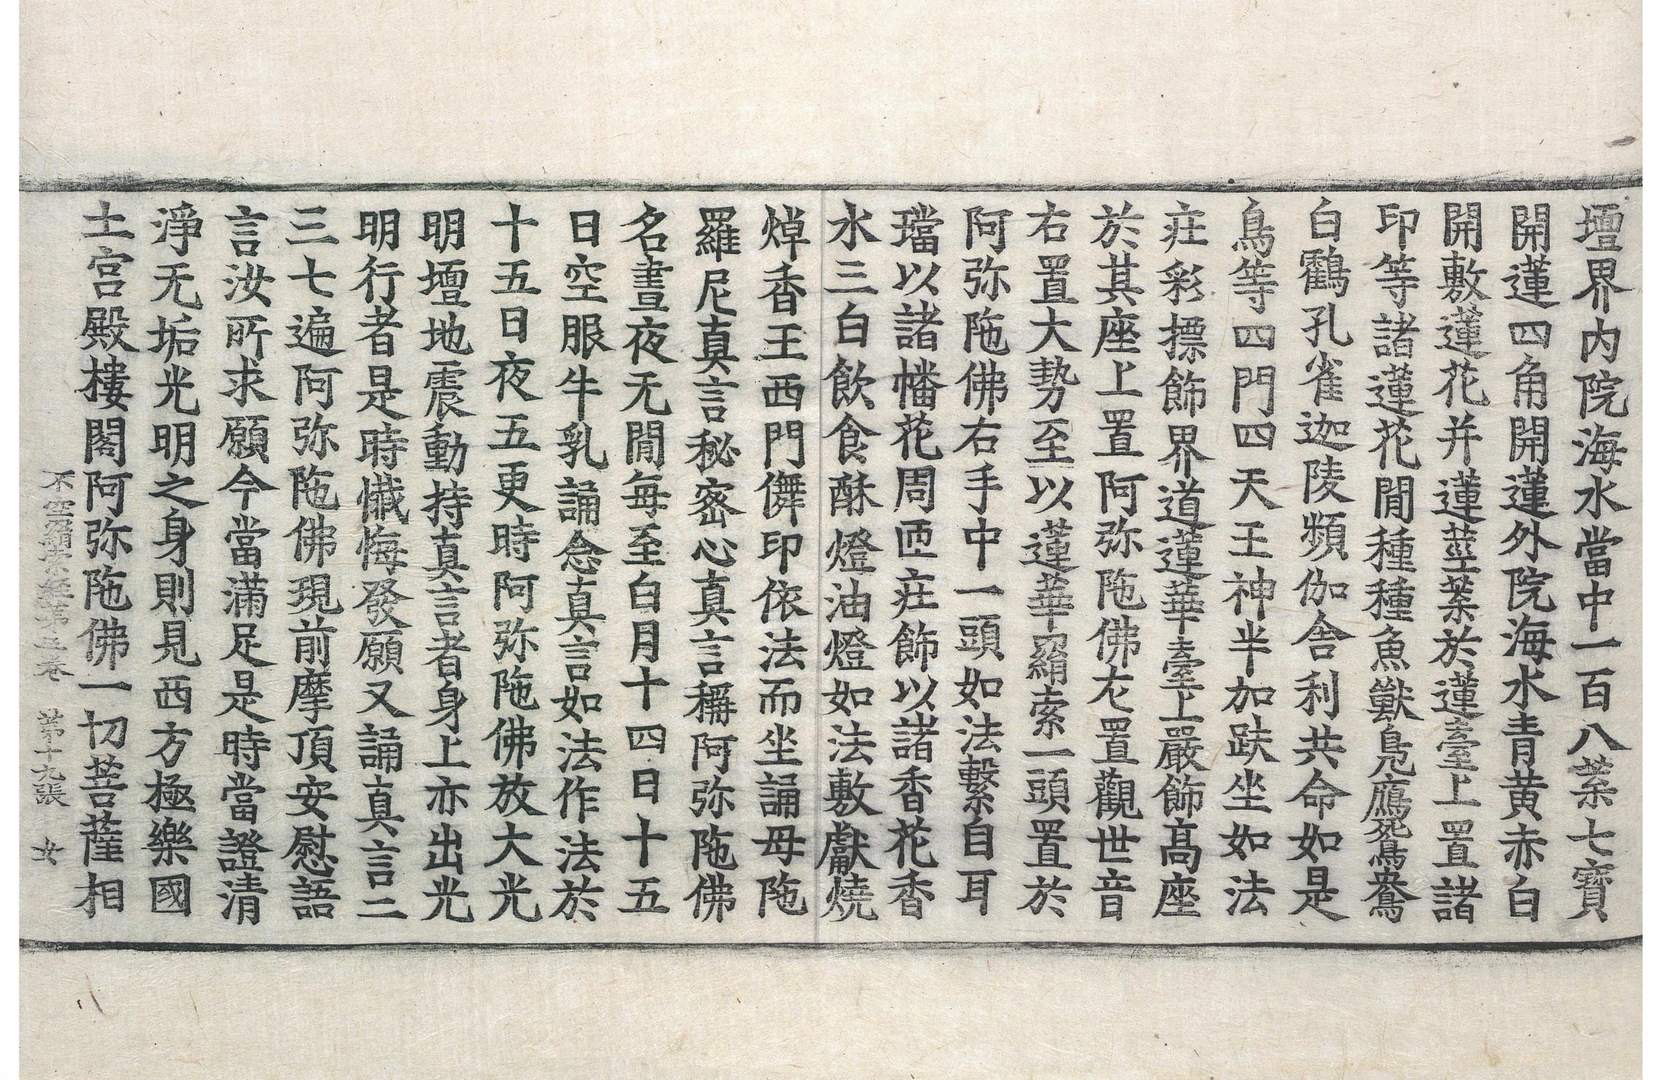 壇界内院海水當中一百八葉七寶
開蓮四角開蓮外院海水青黄赤白
開敷蓮花并蓮莖葉於蓮臺上置諸
印等諸蓮花閒種種魚獸鳧鴈鴛鴦
白鸖孔雀迦陵頻伽舎利共命如是
鳥等四門四天王神半加趺坐如法
庄彩摽飾界道蓮華臺上嚴飾髙座
於其座上置阿弥陁佛左置觀世音
右置大勢至以蓮華羂索一頭置於
阿弥陁佛右手中一頭如法繫自耳
璫以諸幡花周匝庄飾以諸香花香
水三白飲食酥燈油燈如法敷獻燒
焯香王西門儛印依法而坐誦母陁
羅尼真言秘密心真言稱阿弥陁佛
名晝夜无閒每至白月十四日十五
日空服牛乳誦念真言如法作法於
十五日夜五更時阿弥陁佛放大光
明壇地震動持真言者身上亦出光
明行者是時懺悔發願又誦真言二
三七遍阿弥陁佛現前摩頂安慰語
言汝所求願今當滿足是時當證清
淨无垢光明之身則見西方極樂國
土宫殿樓閣阿弥陁佛一切菩薩相
不空羂索經第五卷 第十九張 女